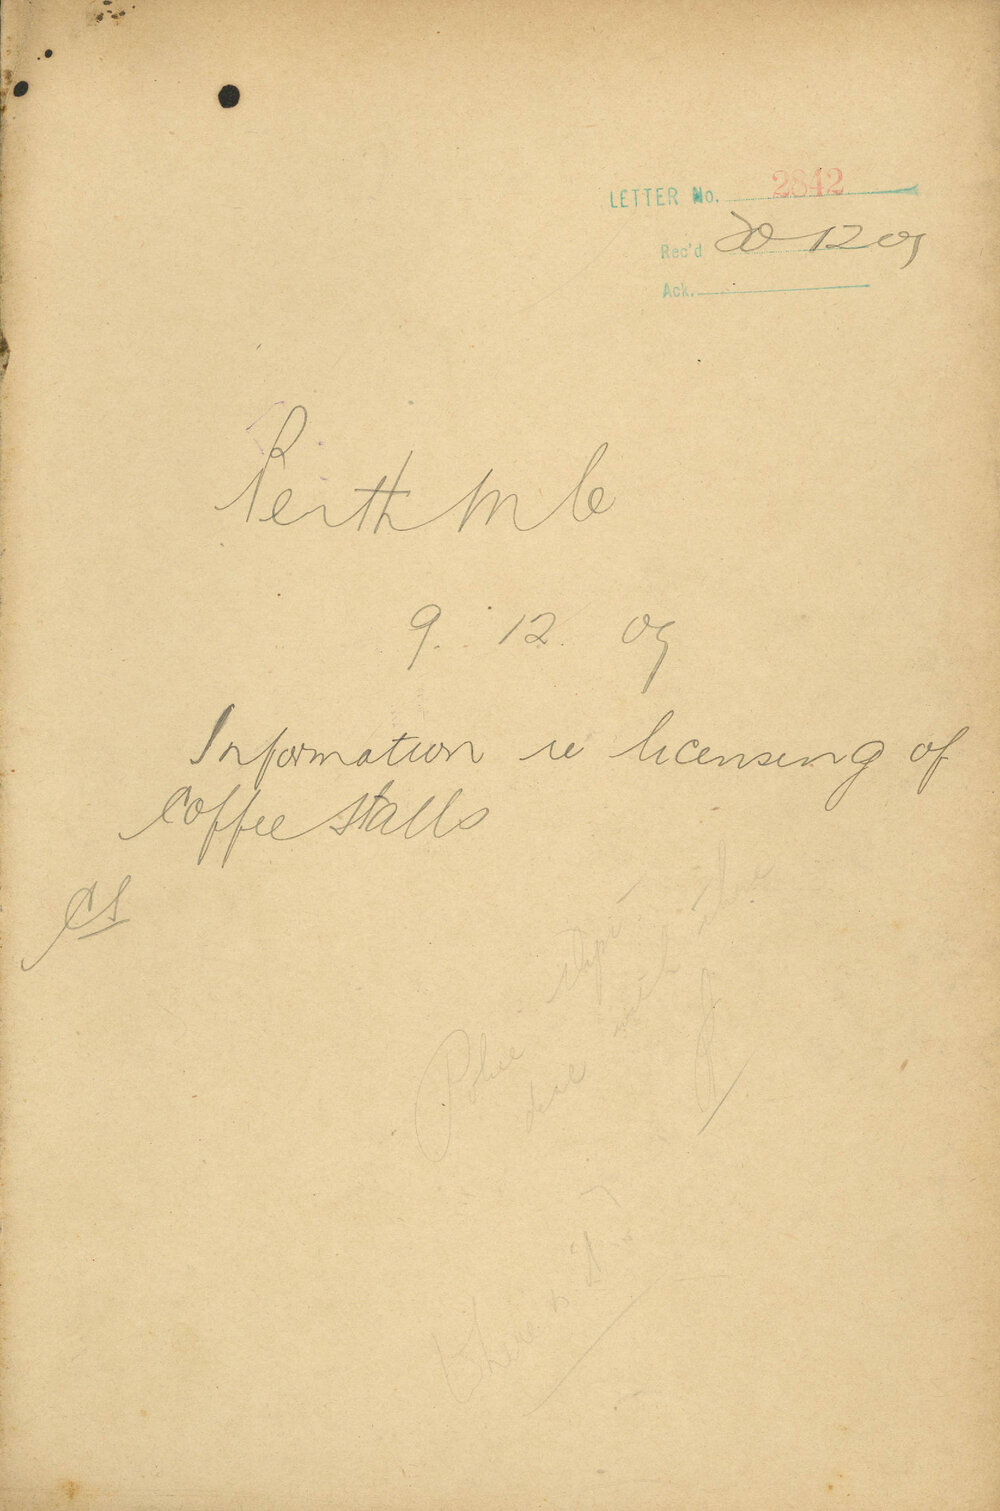 LETTER No. 2842
Rec'd 20 12 09
Ack.
Perth M C
9. 12. 09
Information re licensing of
Coffee Stalls
CS
Police
deal with
Where is it?